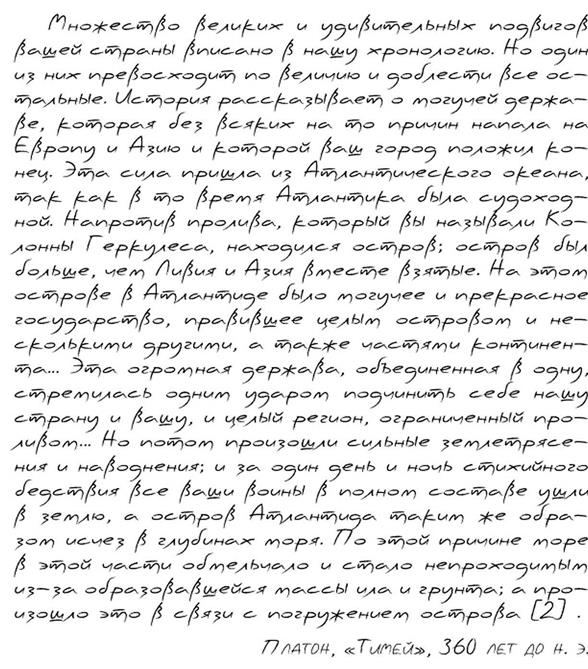 Множество великих и удивительных подвигов
вашей страны вписано в нашу хронологию. Но один
из них превосходит по величию и доблести все ос-
тальные. История рассказывает о могучей держа-
ве, которая без всяких на то причин напала на
Европу и Азию и которой ваш город положил ко-
нец. Эта сила пришла из Атлантического океана,
так как в то время Атлантика была судоход-
ной. Напротив пролива, который вы называли Ко-
лонны Геркулеса, находился остров; остров был
больше, чем Ливия и Азия вместе взятые. На этом
острове в Атлантиде было могучее и прекрасное
государство, правившее целым островом и не-
сколькими другими, а также частями континен-
та... Эта огромная держава, объединенная в одну,
стремилась одним ударом подчинить себе нашу
страну и вашу, и целый регион, ограниченный про-
ливом... Но потом произошли сильные землетрясе-
ния и наводнения; и за один день и ночь стихийного
бедствия все ваши воины в полном составе ушли
в землю, а остров Атлантида таким же обра-
зом исчез в глубинах моря. По этой причине море
в этой части обмельчало и стало непроходимым
из-за образовавшейся массы ила и грунта; а про-
изошло это в связи с погружением острова [2] .
Платон, «Тимей», 360 лет до н. э.